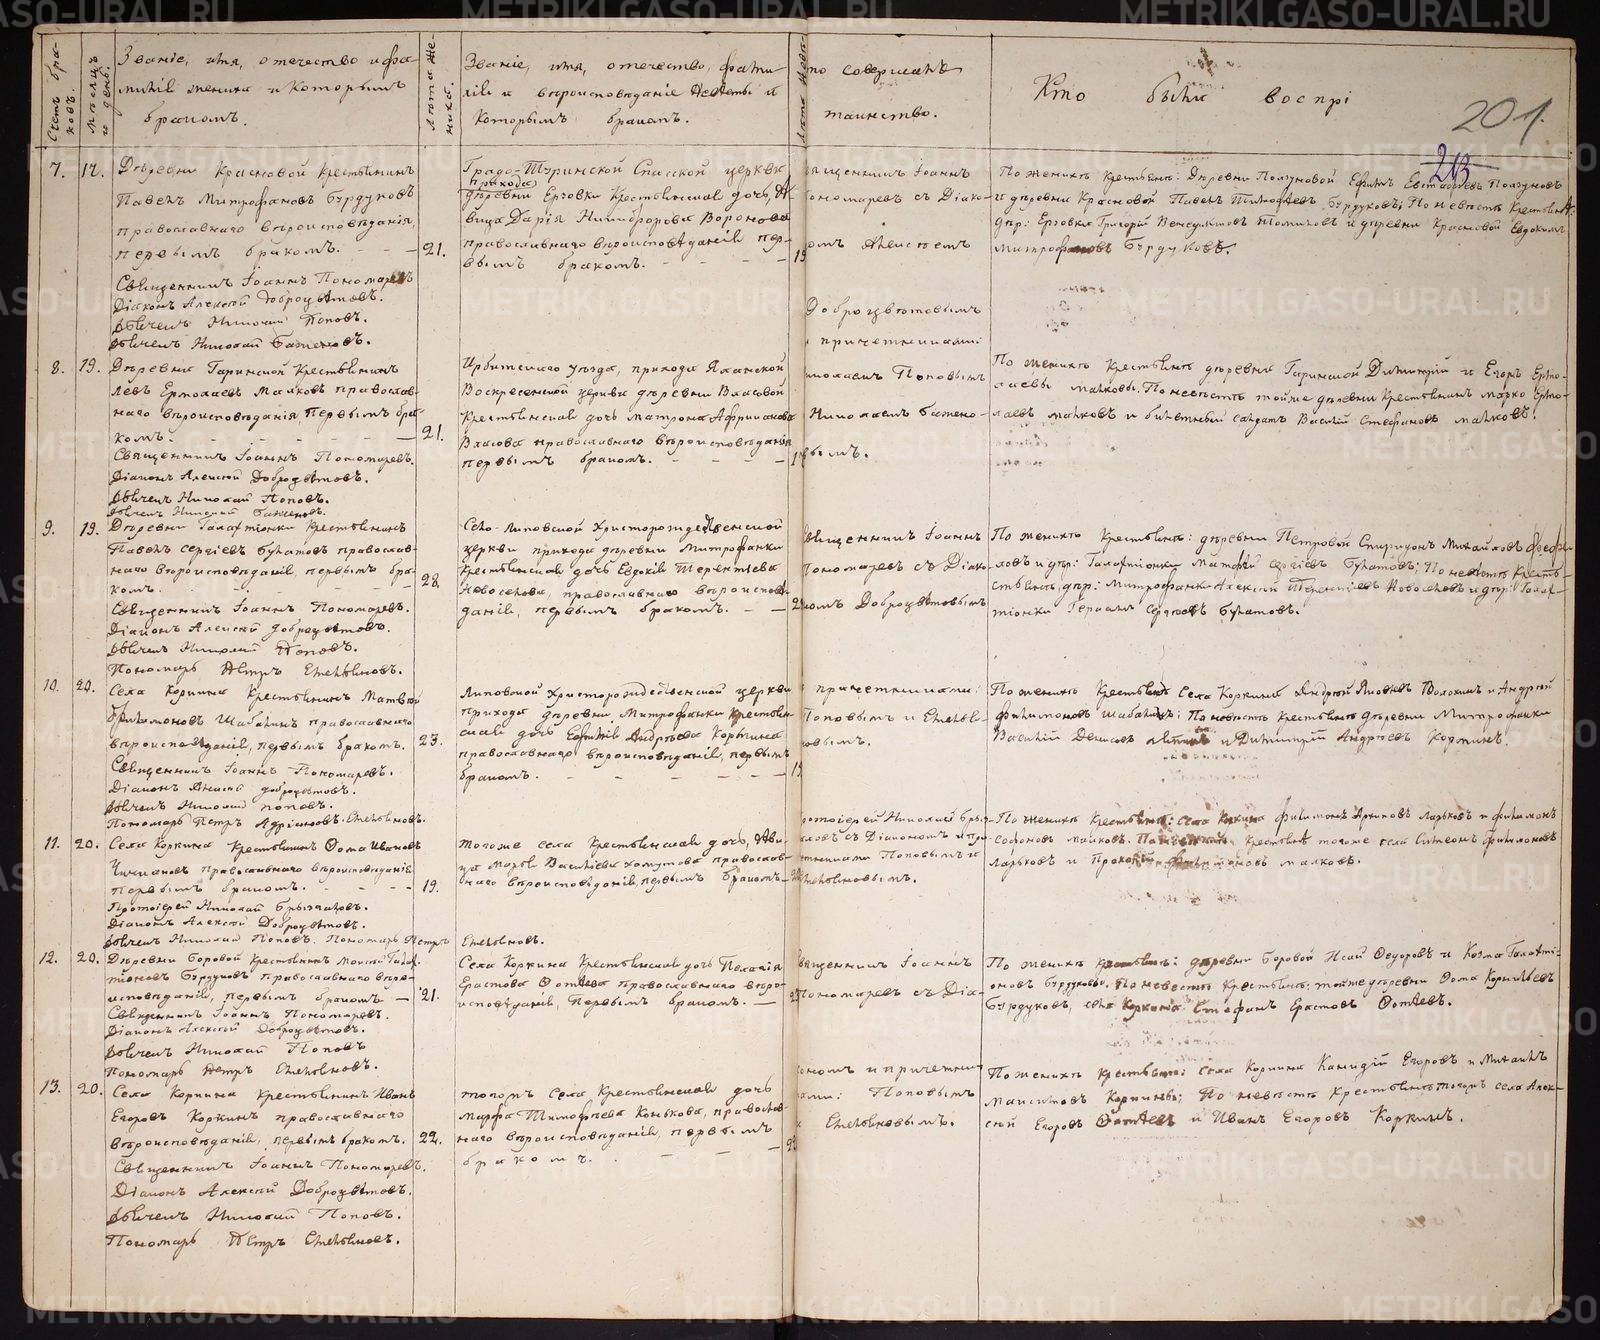 Счетъ бра-
ковъ.
Мѣсяцъ
и день.
Званіе, имя, отечество и фа-
милія жениха и которымъ
бракомъ.
Лѣта же-
ниха.
Званіе, имя, отечество, фами-
лія и вѣроисповѣданіе невѣсты и
которымъ бракомъ.
то совершалъ
таинство.
Кто были воспрі
201.
213
7. 17.
Деревни Красновой Крестьянинъ
Павелъ Митрофановъ Бурдуковъ
православнаго вѣроисповѣданія,
первымъ бракомъ.
21.
Священникъ Іоаннъ Пономаревъ
Діаконъ Алексѣй Доброцвѣтовъ.
Дьячекъ Николай Поповъ.
Дьячекъ Николай Баженовъ.
Градо-Туринской Спаской церкви
прихода
деревни Ерзовки Крестьянская дочь, дѣ-
вица Дарія Никифорова Воронова
православнаго вѣроисповѣданія пер-
вымъ бракомъ.
19
вященникъ Іоаннъ
ономаревъ съ Діако-
омъ Алексѣемъ
Доброцвѣтовымъ
и причетниками:
По женихѣ Крестьяне: деревни Ползуновой Ефимъ Евстафіевъ Ползуновъ
и деревни Красновой Павелъ Тимофѣевъ Бурдуковъ; По невѣстѣ Крестьяне:
дер: Ерзовки Григорій Венедиктовъ и деревни Красновой Евдокимъ
Митрофановъ Бурдуковъ.
8. 19.
Деревни Гаринской Крестьянинъ
Левъ Ермолаевъ Малковъ православ-
наго вѣроисповѣданія, Первымъ бра-
комъ.
21.
Священникъ Іоаннъ Пономаревъ.
Діаконъ Алексѣй Доброцвѣтовъ.
Дьячекъ Николай Поповъ.
Дьячекъ Николай Баженовъ.
Ирбитскаго уѣзда, прихода
Воскресенской церкви деревни Власовой
Крестьянская дочь Матрона Африканова
Власова православнаго вѣроисповѣданія
первымъ бракомъ.
иколаемъ Поповымъ
Николаемъ Бажено-
вымъ.
По женихѣ Крестьяне деревни Гаринской Димитрій и Егоръ Ермо-
лаевы Малковы. По невѣстѣ тойже деревни Крестьянинъ Марко Ермо-
лаевъ Малковъ и билетный солдатъ Василій Стефановъ Малковъ.
9. 19.
Деревни Галахтіонки Крестьянинъ
Павелъ Сергіевъ Булатовъ православ-
наго вѣроисповѣданія, первымъ бра-
комъ.
28.
Священникъ Іоаннъ Пономаревъ.
Діаконъ Алексѣй Доброцвѣтовъ.
Дьячекъ Николай Поповъ.
Пономарь Петръ Емельяновъ.
Село-Липовской Христорождественской
церкви прихода деревни Митрофанки
Крестьянская дочь Евдокія Терентіева
Новоселова, православнаго вѣроисповѣ-
данія, первымъ бракомъ.
вященникъ Іоаннъ
Пономаревъ съ Діако-
номъ Доброцвѣтовымъ
По женихѣ Крестьяне: деревни Петровой Спиридонъ Михайловъ
ловъ и дер: Галахтіонки Матфій Сергіевъ Булатовъ; По невѣстѣ Кресть-
яне, дер: Митрофанки Алексѣй Терентіевъ Новоселовъ и дер: Галах-
тіонки Герасимъ Сергіевъ Булатовъ.
10. 20.
Села Коркина Крестьянинъ Матвѣй
Филимоновъ Шабалинъ православнаго
вѣроисповѣданія, первымъ бракомъ.
23.
Священникъ Іоаннъ Пономаревъ.
Діаконъ Алексѣй Доброцвѣтовъ.
Дьячекъ Николай Поповъ.
Пономарь Петръ Адріановъ Емельяновъ.
Липовской Христорождественской церкви
прихода деревни Митрофанки крестьян-
ская дочь Андреева Коркина
православнаго вѣроисповѣданія, первымъ
бракомъ.
19
и причетниками:
Поповымъ и Емелья-
новымъ.
По женихѣ Крестьяне Села Коркина Андрей Яковлевъ Волохинъ и Андрей
Филимоновъ Шабалинъ; По невѣстѣ крестьяне деревни Митрофанки
Василій Денисовъ и Димитрій Андреевъ Коркинъ.
11. 20.
Села Коркина Крестьянинъ Ѳома Ивановъ
православнаго вѣроисповѣданія
первымъ бракомъ.
19.
Протоіерей Николай
Діаконъ Алексѣй Доброцвѣтовъ.
Дьячекъ Николай Поповъ. Пономарь Петръ Емельяновъ.
Тогоже села Крестьянская дочь, дѣви-
ца Марья Васильева Хомутова православ-
наго вѣроисповѣданія, первымъ бракомъ.
ротоіерей Николай
съ Діакономъ и при-
четниками Поповымъ и
Емельяновымъ.
По женихѣ Крестьяне: села Коркина Филимонъ Ларьковъ и Филимонъ
Софоновъ Малковъ. По невѣстѣ Крестьяне тогоже села Симеонъ Филимоновъ
Ларьковъ и Прокопій Филимоновъ Малковъ.
12. 20.
Деревни Боровой Крестьянинъ Моисей Галак-
тіоновъ Бурдуковъ православнаго вѣро-
исповѣданія, первымъ бракомъ
21.
Священникъ Іоаннъ Пономаревъ.
Діаконъ Алексѣй Доброцвѣтовъ.
Дьячекъ Николай Поповъ
Пономарь Петръ Емельяновъ.
Села Коркина Крестьянская дочь Пелагія
Ерастова Ѳотѣева православнаго вѣро-
исповѣданія, Первымъ бракомъ.
вященникъ Іоаннъ
Пономаревъ съ Діа-
По женихѣ крестьяне: деревни Боровой Исай Ѳедоровъ и Козма Галакті-
оновъ Бурдуковы. По невѣстѣ Крестьяне: тойже деревни Ѳома Корнильевъ
Бурдуковъ, села Коркина Стефанъ Ерастовъ Ѳотѣевъ.
13. 20.
Села Коркина Крестьянинъ Иванъ
Егоровъ Коркинъ православнаго
вѣроисповѣданія, первымъ бракомъ.
22.
Священникъ Іоаннъ Пономаревъ.
Діаконъ Алексѣй Доброцвѣтовъ.
Дьячекъ Николай Поповъ.
Пономарь Петръ Емельяновъ.
тогожъ села Крестьянская дочь
Марфа Тимофѣева Конькова, православ-
наго вѣроисповѣданія, первымъ
бракомъ.
ономъ и причетни-
ками: Поповымъ
и Емельяновымъ.
По женихѣ Крестьяне: села Коркина Канидій Егоровъ и Михаилъ
Максимовъ Коркины; По невѣстѣ Крестьяне тогожъ села Алек-
сѣй Егоровъ Ѳотѣевъ и Иванъ Егоровъ Коркинъ.
METRIKI.GASO-URAL.RU